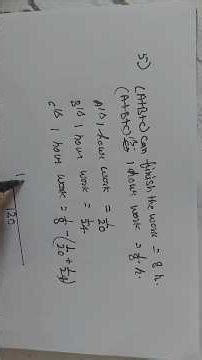 5) (A+B+C) can finish the work = 8 h.
(A+B+C)'s 1 hours work = 1/8 h.
A's 1 hours work = 1/20
B's 1 hour work = 1/24
C's 1 hour work = 1/8 - (1/20 + 1/24)
120